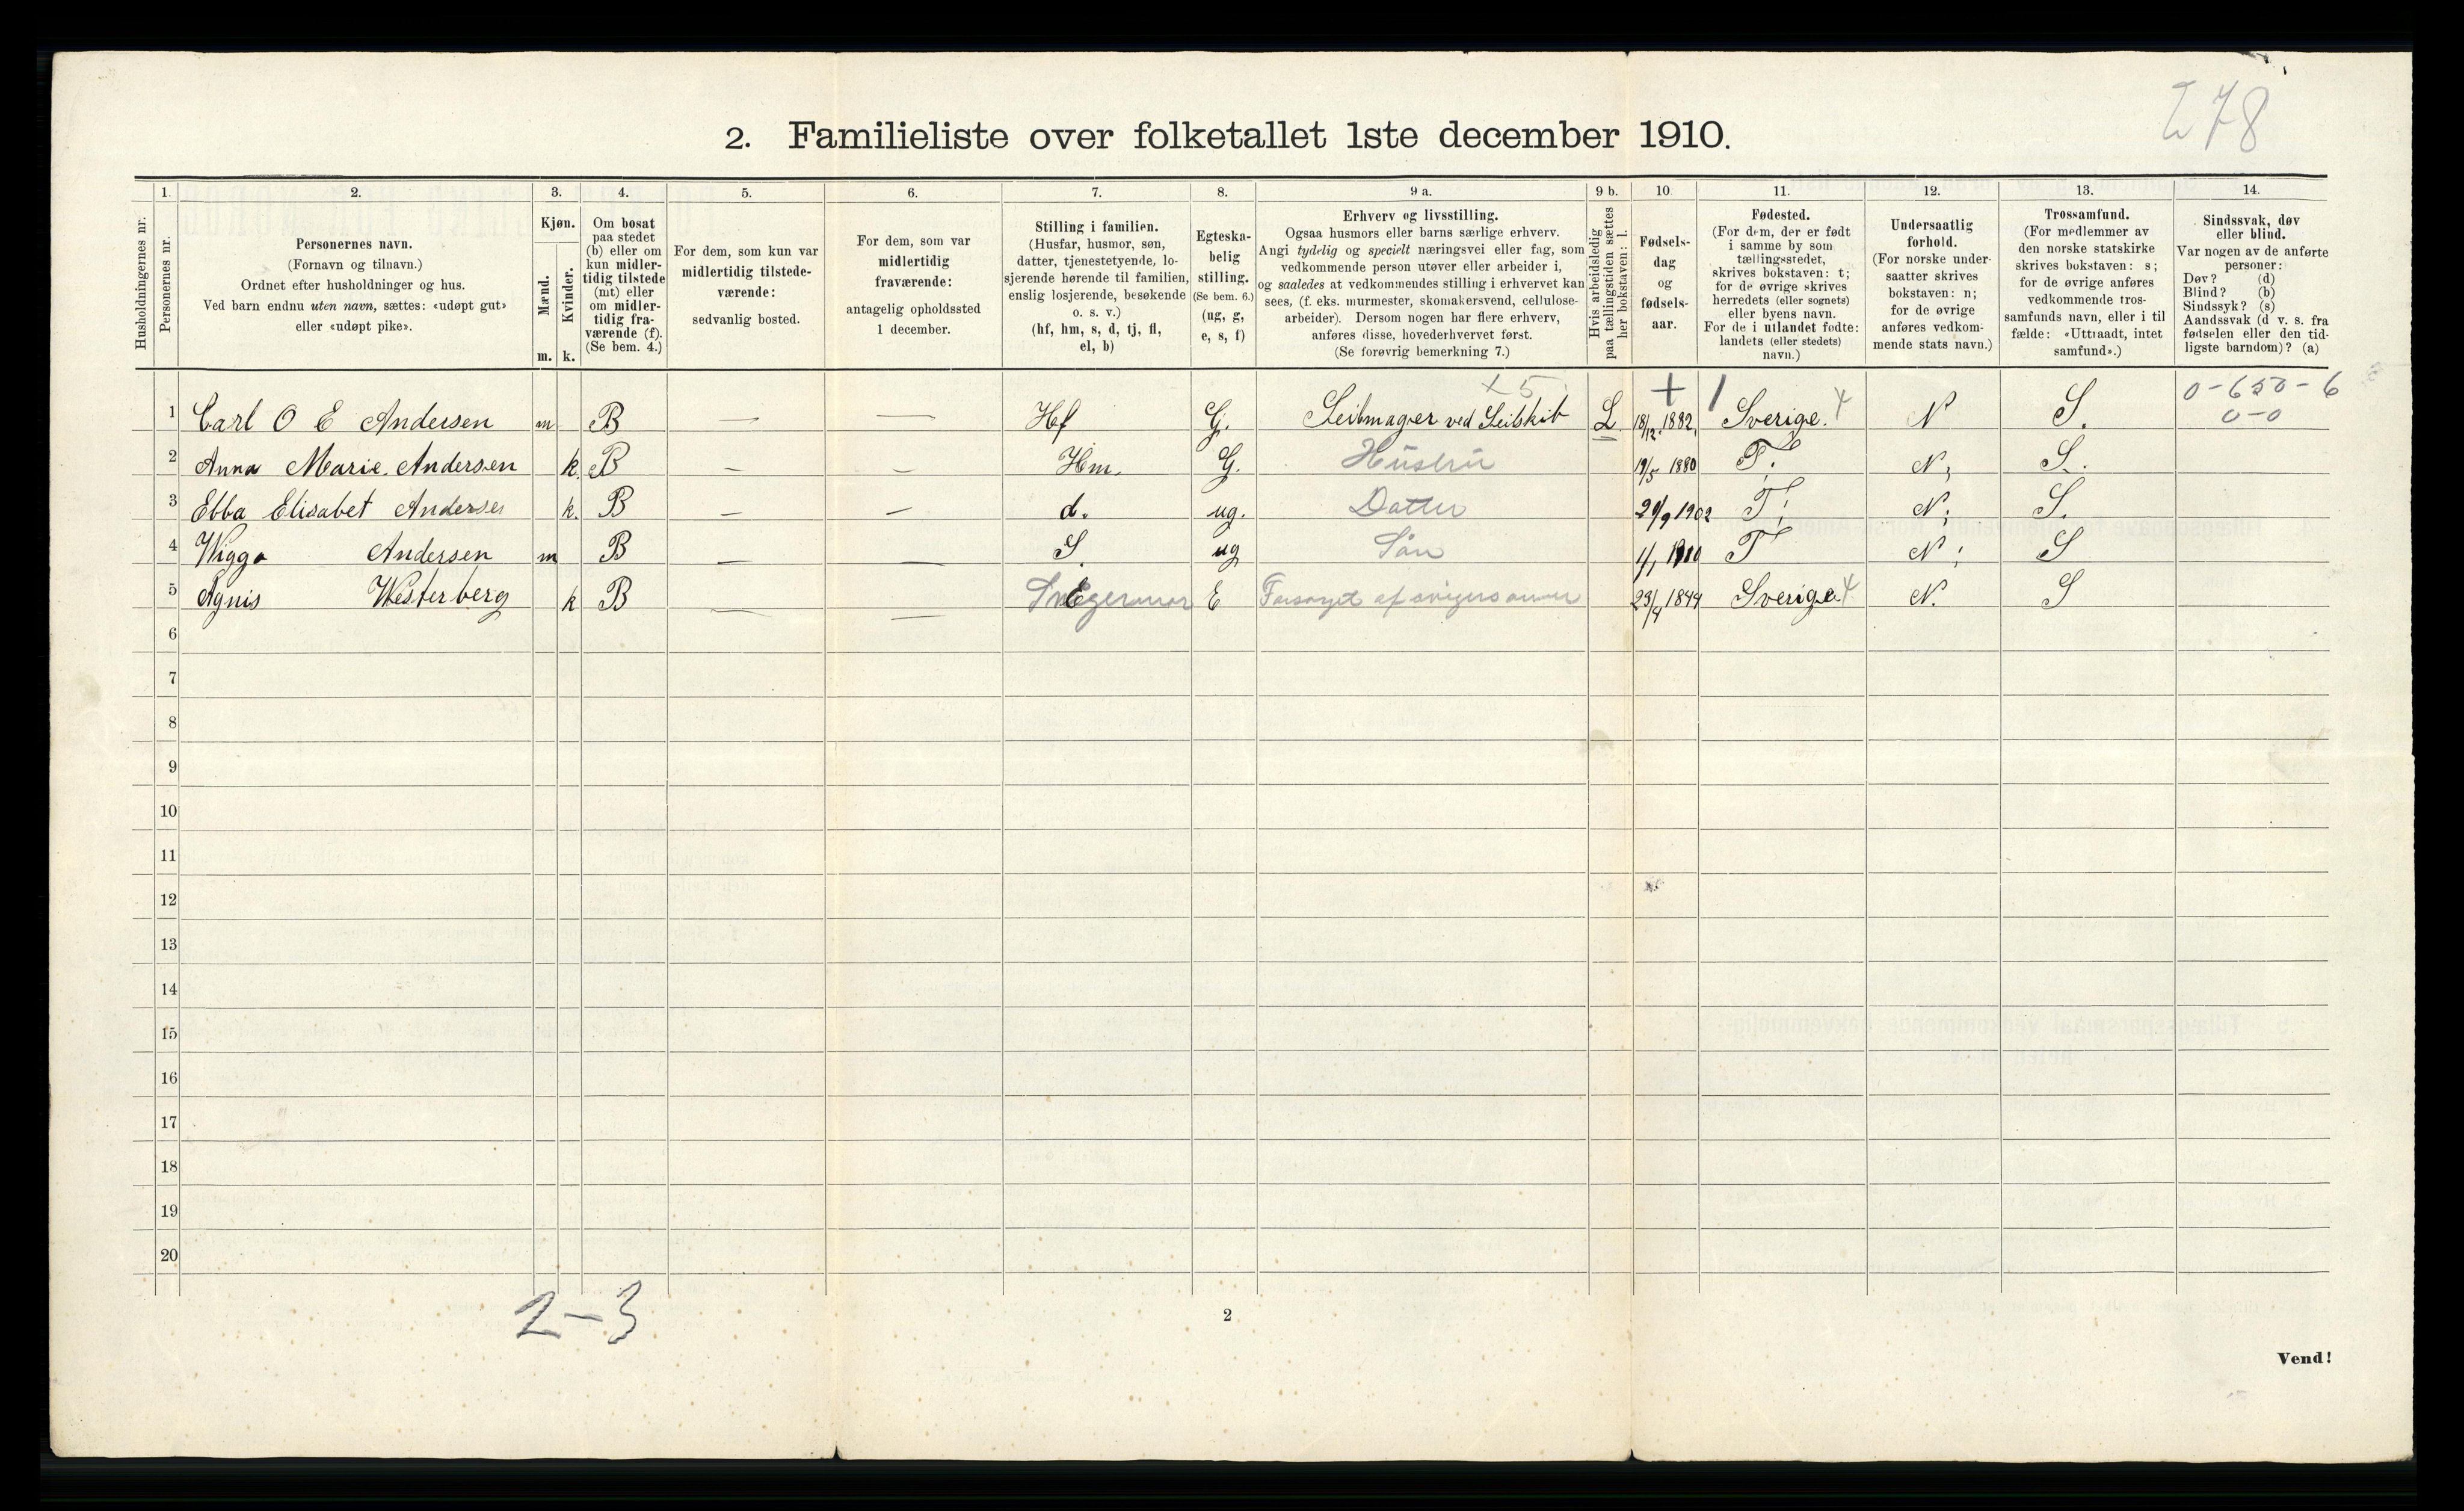 278
2. Familieliste over folketallet 1ste december 1910.
1. 2. 3. 4. 5. 6. 7. 8. 9 a. 9 b. 10. 11. 12. 13. 14.
Husholdningernes nr.
Personernes nr.
Personernes navn.
(Fornavn og tilnavn.)
Ordnet efter husholdninger og hus.
Ved barn endnu uten navn, sættes: «udøpt gut»
eller «udøpt pike».
Kjøn.
Mænd.
Kvinder.
m. k.
Om bosat
paa stedet
(b) eller om
kun midler-
tidig tilstede
(mt) eller
om midler-
tidig fra-
værende (f).
(Se bem. 4.)
For dem, som kun var
midlertidig tilstede-
værende:
sedvanlig bosted.
For dem, som var
midlertidig
fraværende:
antagelig opholdssted
1 december.
Stilling i familien.
(Husfar, husmor, søn,
datter, tjenestetyende, lo-
sjerende hørende til familien,
enslig losjerende, besøkende
o. s. v.)
(hf, hm, s, d, tj, fl,
el, b)
Egteska-
belig
stilling.
(Se bem. 6.)
(ug, g,
e, s, f)
Erhverv og livsstilling.
Ogsaa husmors eller barns særlige erhverv.
Angi tydelig og specielt næringsvei eller fag, som
vedkommende person utøver eller arbeider i,
og saaledes at vedkommendes stilling i erhvervet kan
sees, (f. eks. murmester, skomakersvend, cellulose-
arbeider). Dersom nogen har flere erhverv,
anføres disse, hovederhvervet først.
(Se forøvrig bemerkning 7.)
Hvis arbeidsledig
paa tællingstiden sættes
her bokstaven: l.
Fødsels-
dag
og
fødsels-
aar.
Fødested.
(For dem, der er født
i samme by som
tællingsstedet,
skrives bokstaven: t;
for de øvrige skrives
herredets (eller sognets)
eller byens navn.
For de i utlandet fødte:
landets (eller stedets)
navn.)
Undersaatlig
forhold.
(For norske under-
saatter skrives
bokstaven: n;
for de øvrige
anføres vedkom-
mende stats navn.)
Trossamfund.
(For medlemmer av
den norske statskirke
skrives bokstaven: s;
for de øvrige anføres
vedkommende tros-
samfunds navn, eller i til
fælde: «Uttraadt, intet
samfund».)
Sindssvak, døv
eller blind.
Var nogen av de anførte
personer:
Døv? (d)
Blind? (b)
Sindssyk? (s)
Aandssvak (d v. s. fra
fødselen eller den tid-
ligste barndom)? (a)
x 5 + 1 0-650-6
1 Carl O E Andersen m B — — Hf G. Seilmager ved Seilskib L 18/12.1882, Sverige. 4 N S. 0-0
2 Anna Marie. Andersen k. B — — Hm. G. Hustru 19/5 1880 T. N; S.
3 Ebba Elisabet Andersen k. B — — d. ug. Datter 29/9 1902 T; N; S.
4 Wiggo Andersen m B — — S. ug Sön 1/1 1910 T N; S
5 Agnis Westerberg k B — — Svegermor E Forsørget af svigersønnen 23/4 1844 Sverige. 4 N. S
6
7
8
9
10
11
12
13
14
15
16
17
18
19
20
2-3
2
Vend!